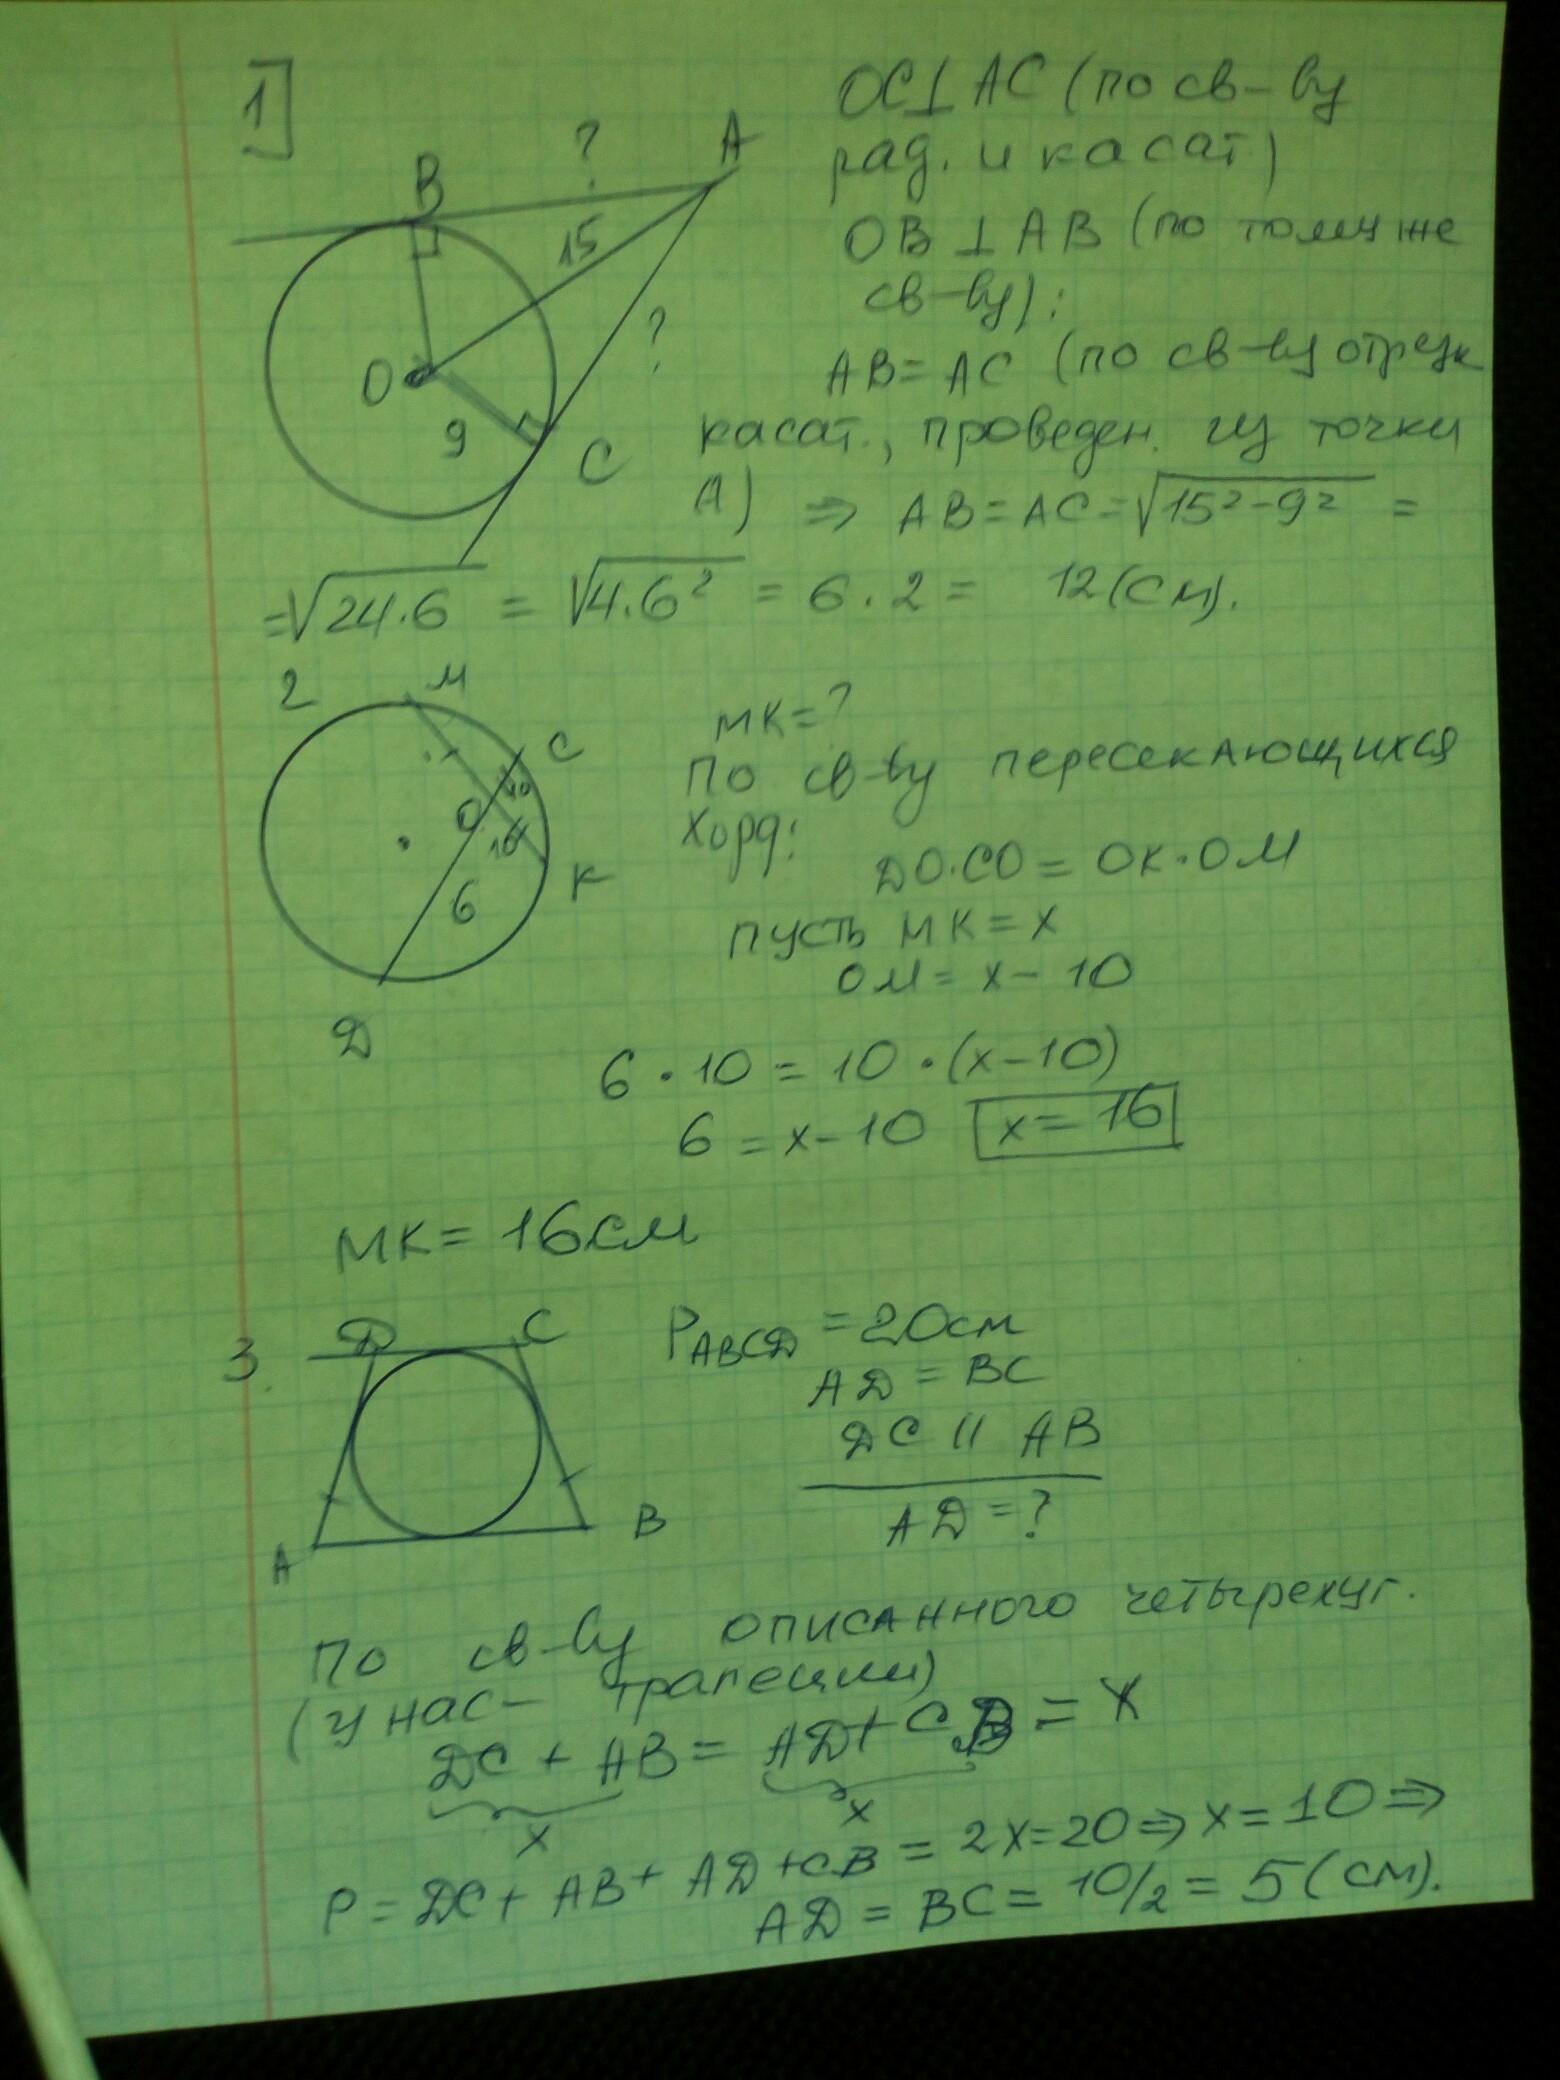 1]
OC⊥AC (по св-ву
рад. и касат)
B ? A
15
OB⊥AB (по тому же
св-ву);
?
O
9
C
AB=AC (по св-ву отрезк
касат., проведен. из точки
A) ⇒ AB=AC=√15²-9² =
=√24·6 = √4·6² = 6·2 = 12(см).
2
M
C
10
O
10
6
K
D
MK=?
По св-ву пересекающихся
хорд:
DO·CO = OK·OM
пусть MK=x
OM= x-10
6·10=10·(x-10)
6=x-10 x=16
MK= 16см
3.
D C
A B
P ABCD =20см
AD=BC
DC || AB
AD=?
По св-ву описанного четырехуг.
(у нас- трапеции)
DC + AB= AD+CB= x
x x
P=DC+AB+AD+CB= 2x=20⇒x=10⇒
AD=BC=10/2=5(см).